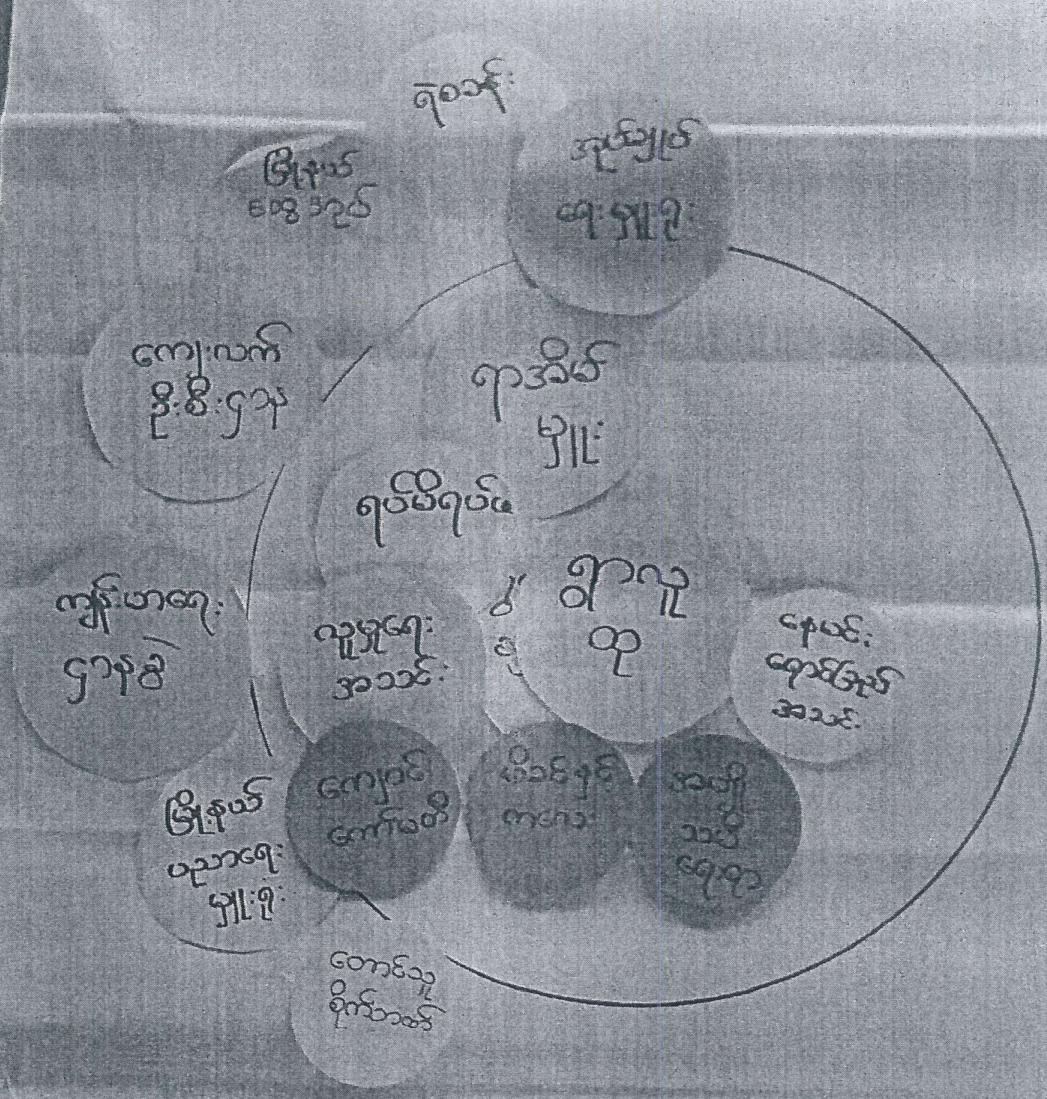 ရဲစခန်း
မြို့နယ်
ထွေ အုပ်
အုပ်ချုပ်
ရေးမှူးရုံး
ကျေးလက်
ဦးစီးဌာန
ရာအိမ်
မှူး
ရပ်မိရပ်ဖ
ကျန်းမာရေး
ဌာနခွဲ
လူမှုရေး
အသင်း
ရွာလူ
ထု
နေမင်း
ရောင်ခြည်
အသင်း
မြို့နယ်
ပညာရေး
မှူးရုံး
ကျောင်း
ကော်မတီ
မိခင်နှင့်
ကလေး
အမျိုး
သမီး
ရေးရာ
တောင်သူ
စိုက်ဘဏ်